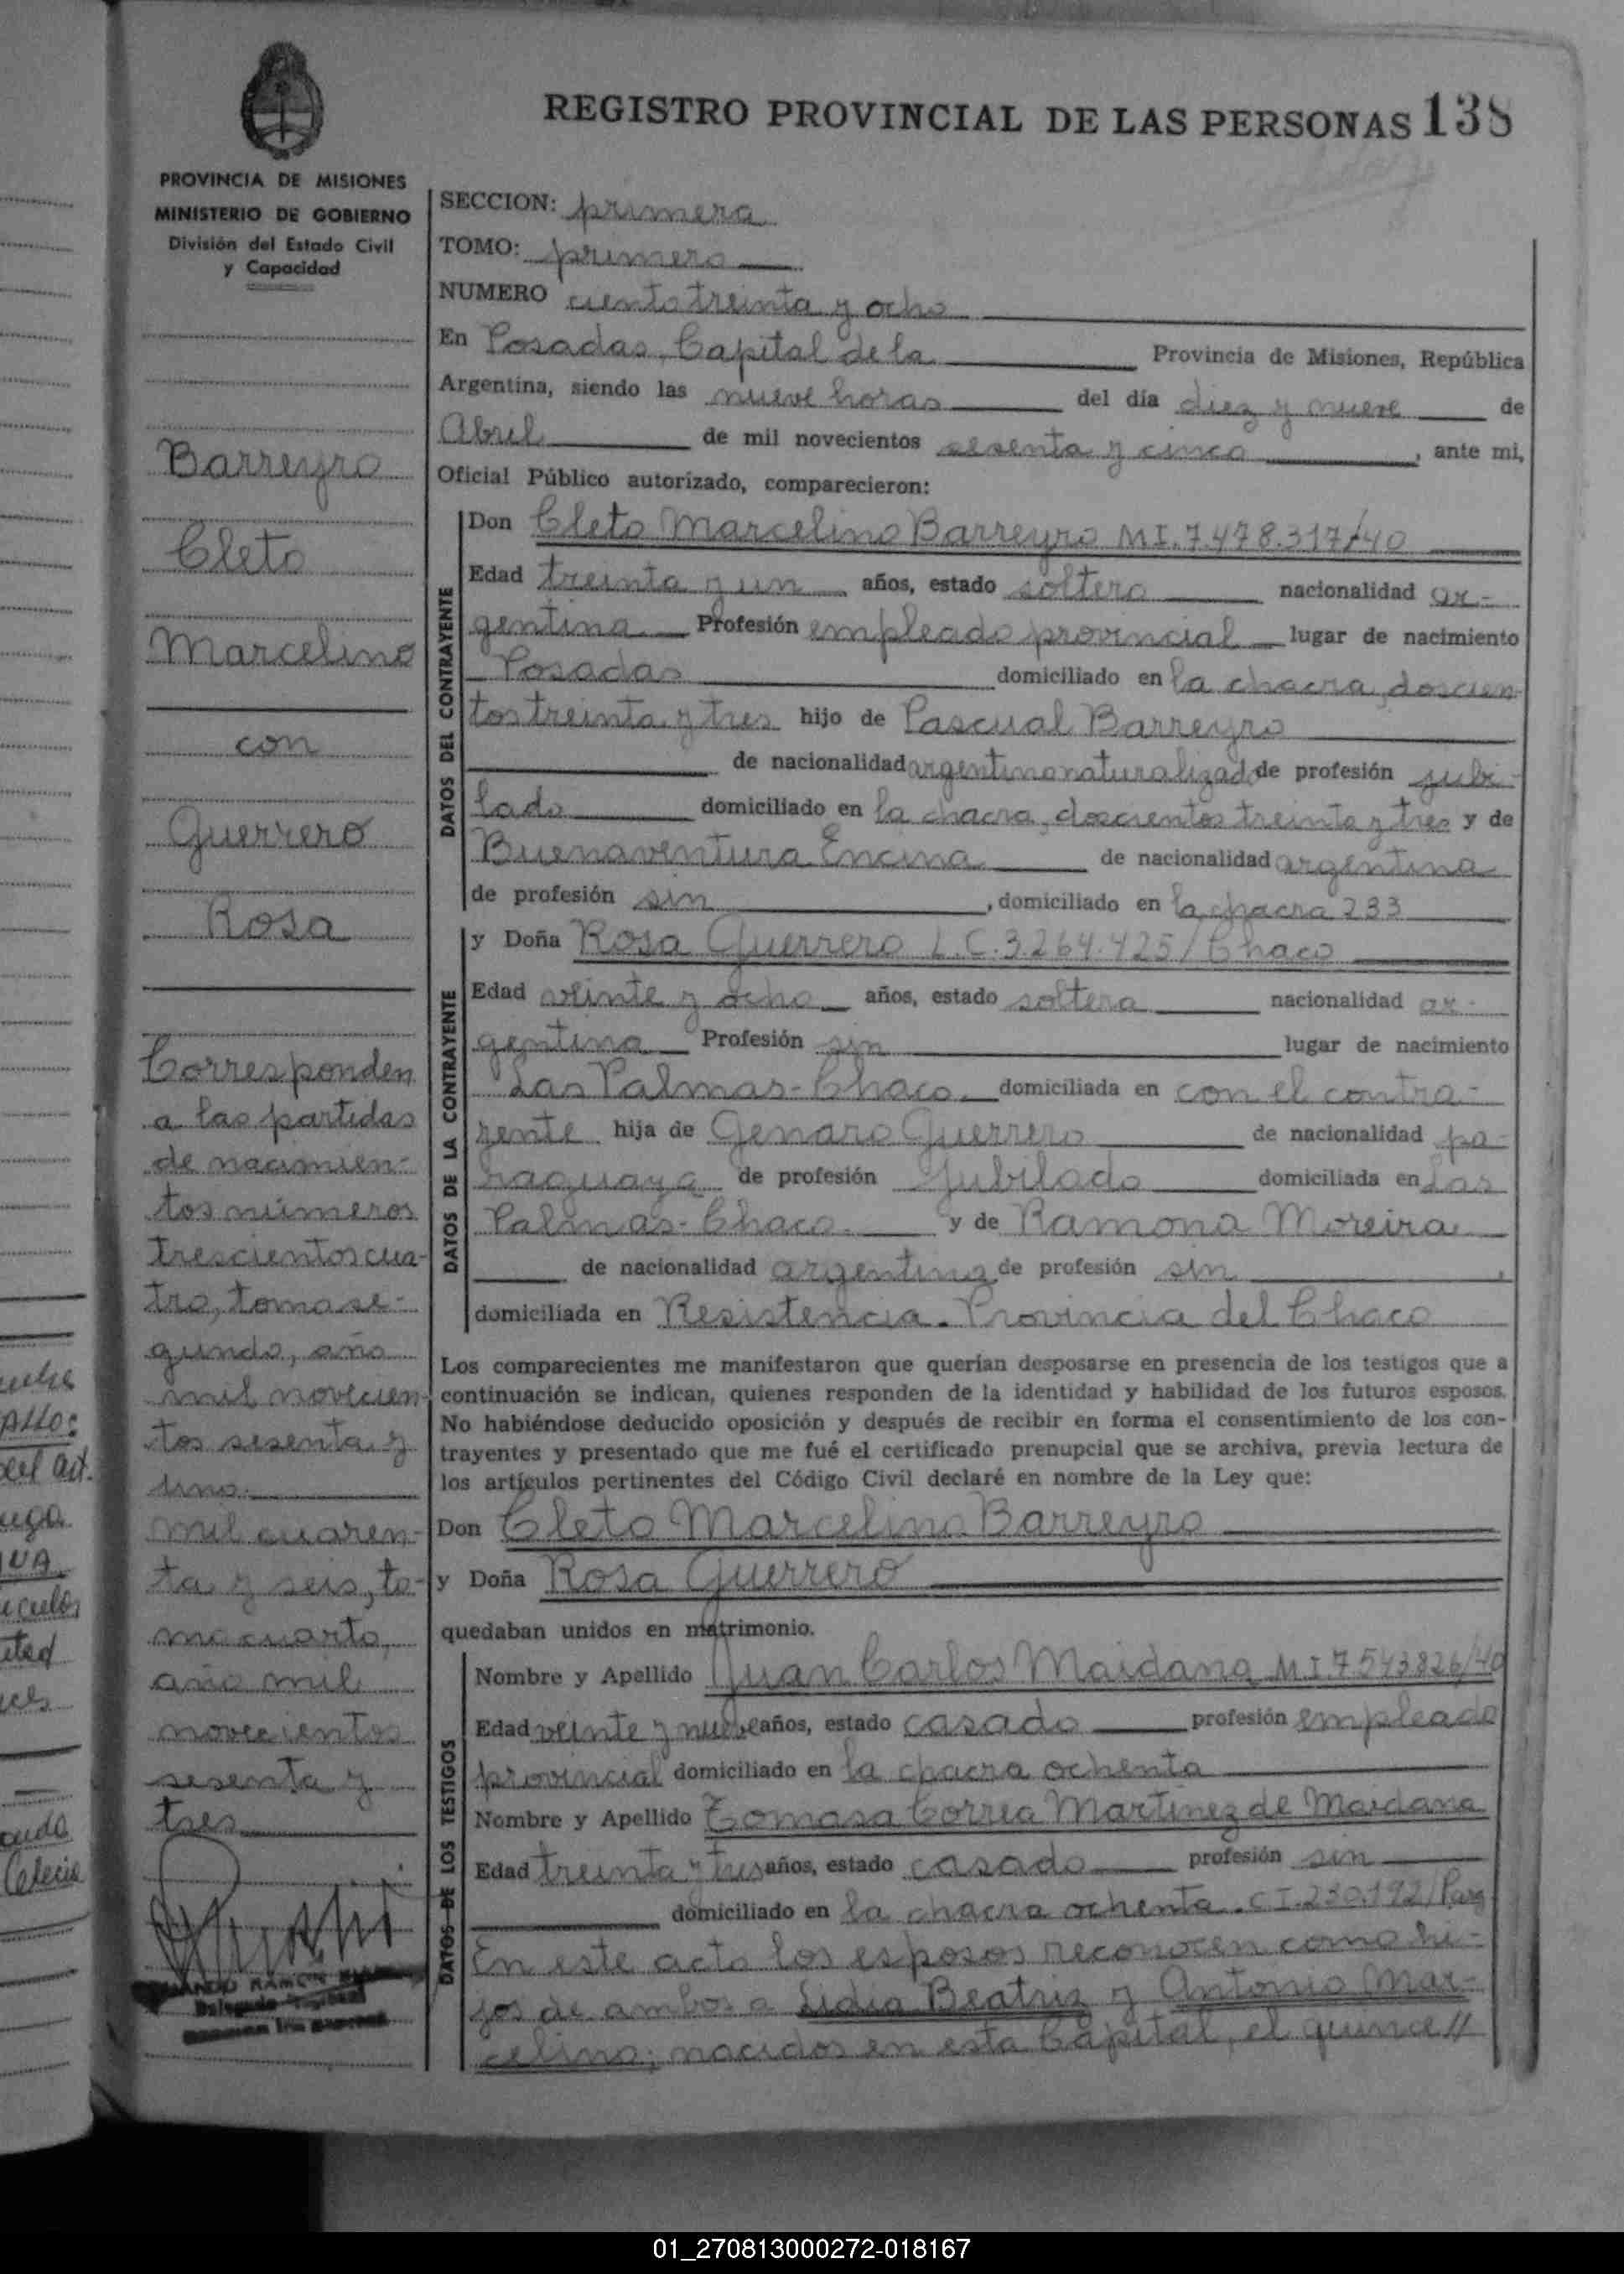 REGISTRO PROVINCIAL DE LAS PERSONAS 138
PROVINCIA DE MISIONES
MINISTERIO DE GOBIERNO
División del Estado Civil
y Capacidad
Barreyro
Cleto
Marcelino
con
Guerrero
Rosa
Corresponden
a las partidas
de nacimien-
tos números
trescientos cua-
tro, tomo se-
gundo, año
mil novecien-
tos sesenta y
uno
mil cuaren-
ta y seis, to-
mo cuarto,
año mil
novecientos
sesenta y
tres
RAMON
SECCION: primera
TOMO: primero
NUMERO ciento treinta y ocho
En Posadas, Capital de la Provincia de Misiones, República
Argentina, siendo las nueve horas del día diez y nueve de
Abril de mil novecientos sesenta y cinco, ante mi,
Oficial Público autorizado, comparecieron:
DATOS DEL CONTRAYENTE
Don Cleto Marcelino Barreyro M I. 7.478.317/40
Edad treinta y un años, estado soltero nacionalidad ar-
gentina Profesión empleado provincial lugar de nacimiento
Posadas domiciliado en la chacra doscien
tos treinta y tres hijo de Pascual Barreyro
de nacionalidad argentino naturalizado de profesión jubi-
lado domiciliado en la chacra, doscientos treinta y tres y de
Buenaventura Encina de nacionalidad argentina
de profesión sin, domiciliado en la chacra 233
DATOS DE LA CONTRAYENTE
y Doña Rosa Guerrero L.C.3.264.425/Chaco
Edad veinte y ocho años, estado soltera nacionalidad ar-
gentina Profesión sin lugar de nacimiento
Las Palmas-Chaco domiciliada en con el contra-
yente hija de Genaro Guerrero de nacionalidad pa-
raguaya de profesión Jubilado domiciliada en Las
Palmas-Chaco y de Ramona Moreira
de nacionalidad argentina de profesión sin,
domiciliada en Resistencia. Provincia del Chaco
Los comparecientes me manifestaron que querían desposarse en presencia de los testigos que a
continuación se indican, quienes responden de la identidad y habilidad de los futuros esposos.
No habiéndose deducido oposición y después de recibir en forma el consentimiento de los con-
trayentes y presentado que me fué el certificado prenupcial que se archiva, previa lectura de
los artículos pertinentes del Código Civil declaré en nombre de la Ley que:
Don Cleto Marcelino Barreyro
y Doña Rosa Guerrero
quedaban unidos en matrimonio.
DATOS DE LOS TESTIGOS
Nombre y Apellido Juan Carlos Maidana M I 7543826/40
Edad veinte y nueve años, estado casado profesión empleado
provincial domiciliado en la chacra ochenta
Nombre y Apellido Tomasa Correa Martinez de Maidana
Edad treinta y tres años, estado casado profesión sin
domiciliado en la chacra ochenta. C I. 230.192/Parg
En este acto los esposos reconocen como hi-
jos de ambos a Lidia Beatriz y Antonio Mar-
celino; nacidos en esta Capital, el quince//
01_270813000272-018167